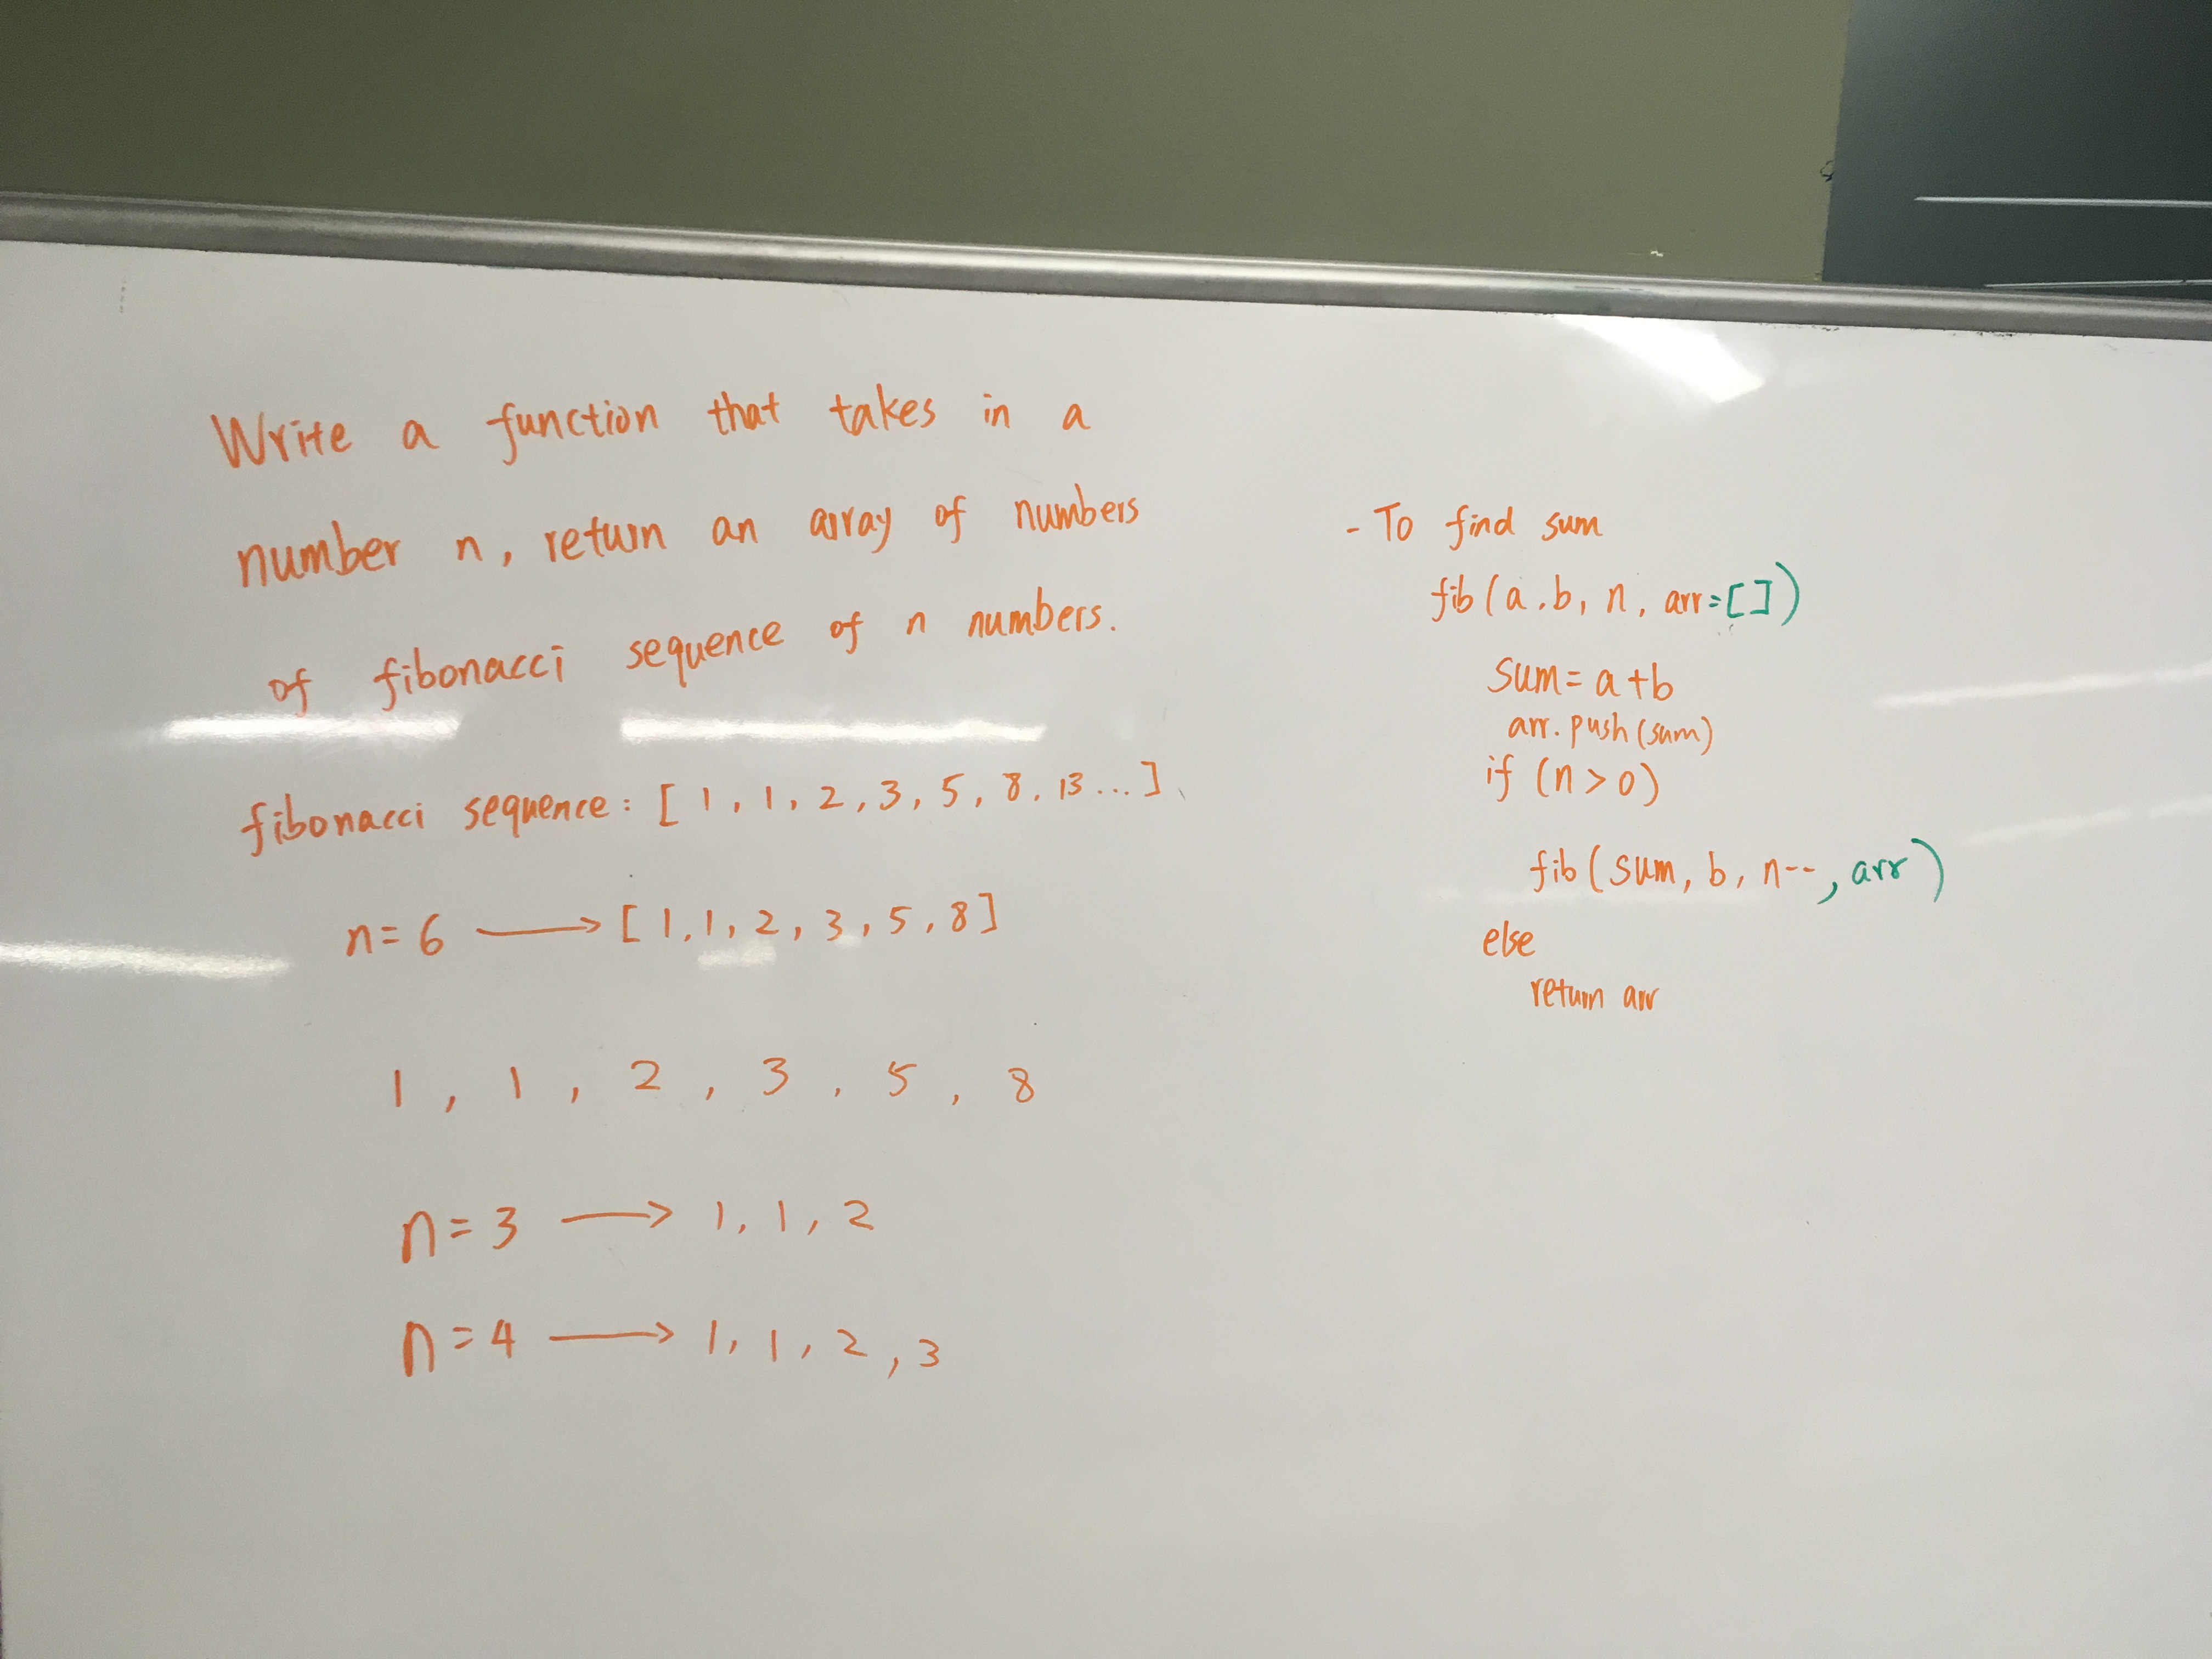 Write a function that takes in a
number n, return an array of numbers
of fibonacci sequence of n numbers.
fibonacci sequence: [ 1, 1, 2, 3, 5, 8, 13... ]
n=6 → [1,1,2,3,5,8]
1, 1, 2, 3, 5, 8
n=3 → 1, 1, 2
n=4 → 1, 1, 2, 3
- To find sum
fib(a,b, n, arr=[])
sum=a+b
arr.push(sum)
if (n>0)
fib(sum, b, n--, arr)
else
return arr